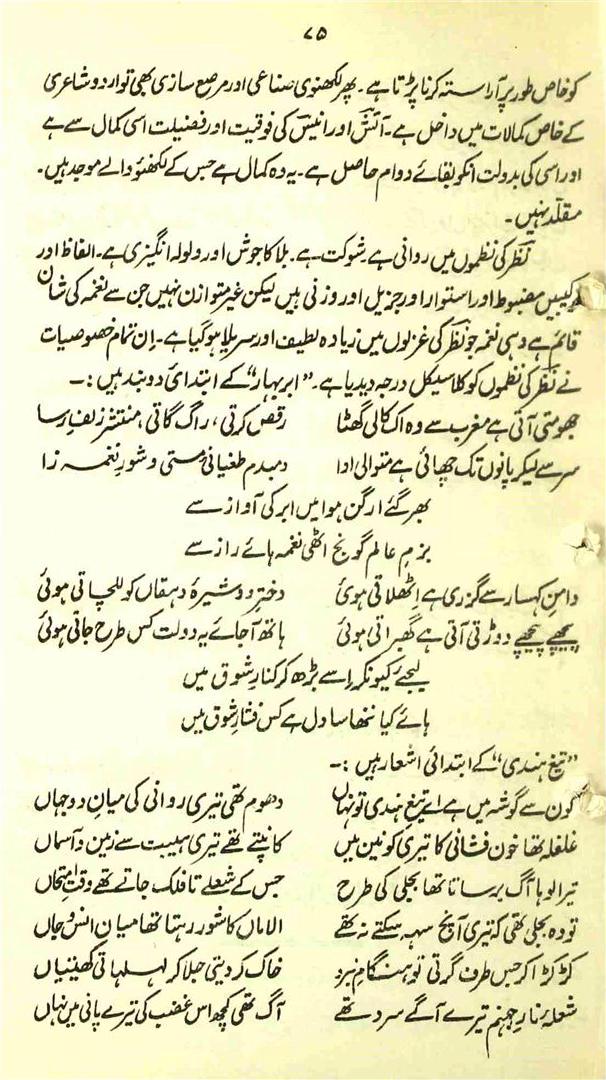 ۷۵
کو خاص طور پر آراستہ کرنا پڑتا ہے۔ پھر لکھنوی صناعی اور مرصع سازی بھی تو اردو شاعری
کے خاص کمالات میں داخل ہے۔ آتش اور انیس کی فوقیت اور فضیلت اسی کمال سے ہے
اور اسی کی بدولت انکو بقائے دوام حاصل ہے۔ یہ وہ کمال ہے جس کے لکھنؤ والے موجد ہیں۔
مقلد نہیں۔
نظر کی نظموں میں روانی ہے۔ شوکت ہے۔ بلا کا جوش اور ولولہ انگیزی ہے۔ الفاظ اور
ترکیبیں مضبوط اور استوار اور جزیل اور وزنی ہیں لیکن غیر متوازن نہیں جن سے نغمہ کی شان
قائم ہے وہی نغمہ جو نظر کی غزلوں میں زیادہ لطیف اور سریلا ہو گیا ہے۔ ان تمام خصوصیات
نے نظر کی نظموں کو کلاسیکل درجہ دیدیا ہے۔ "ابر بہار" کے ابتدائی دو بند ہیں :۔
جھومتی آتی ہے مغرب سے وہ اک کالی گھٹا رقص کرتی، راگ گاتی، منتشر زلف رسا
سر سے لیکر پانوں تک چھائی ہے متوالی ادا دمبدم طغیانی مستی و شور نغمہ زا
بھر گئے ارگن ہوا میں ابر کی آواز سے
بزم عالم گونج اٹھی نغمہ ہائے راز سے
دامن کہسار سے گزری ہے اٹھلاتی ہوئی دختر دوشیزۂ دہقاں کو للچاتی ہوئی
پیچھے پیچھے دوڑتی آتی ہے گھبراتی ہوئی ہاتھ آجائے یہ دولت کس طرح جاتی ہوئی
لیجئے کیونکر اسے بڑھ کر کنار شوق میں
ہائے کیا ننھا سا دل ہے کس فشار شوق میں
"تیغ ہندی" کے ابتدائی اشعار ہیں :۔
کون سے گوشہ میں ہے اے تیغ ہندی تو نہاں دھوم تھی تیری روانی کی میان دو جہاں
غلغلہ تھا خون فشانی کا تیری کونین میں کانپتے تھے تیری ہیبت سے زمین و آسماں
تیرا لوہا آگ برساتا تھا بجلی کی طرح جس کے شعلے تا فلک جاتے تھے وقت امتحاں
تو وہ بجلی تھی کہ تیری آنچ سہہ سکتے نہ تھے الاماں کا شور رہتا تھا میان انس و جاں
کڑکڑا کر جس طرف گرتی تو ہنگام نبرد خاک کر دیتی جلا کر لہلہاتی کھیتیاں
شعلہ ہنار جہنم تیرے آگے سرد تھے آگ تھی کچھ اس غضب کی تیرے پانی میں نہاں